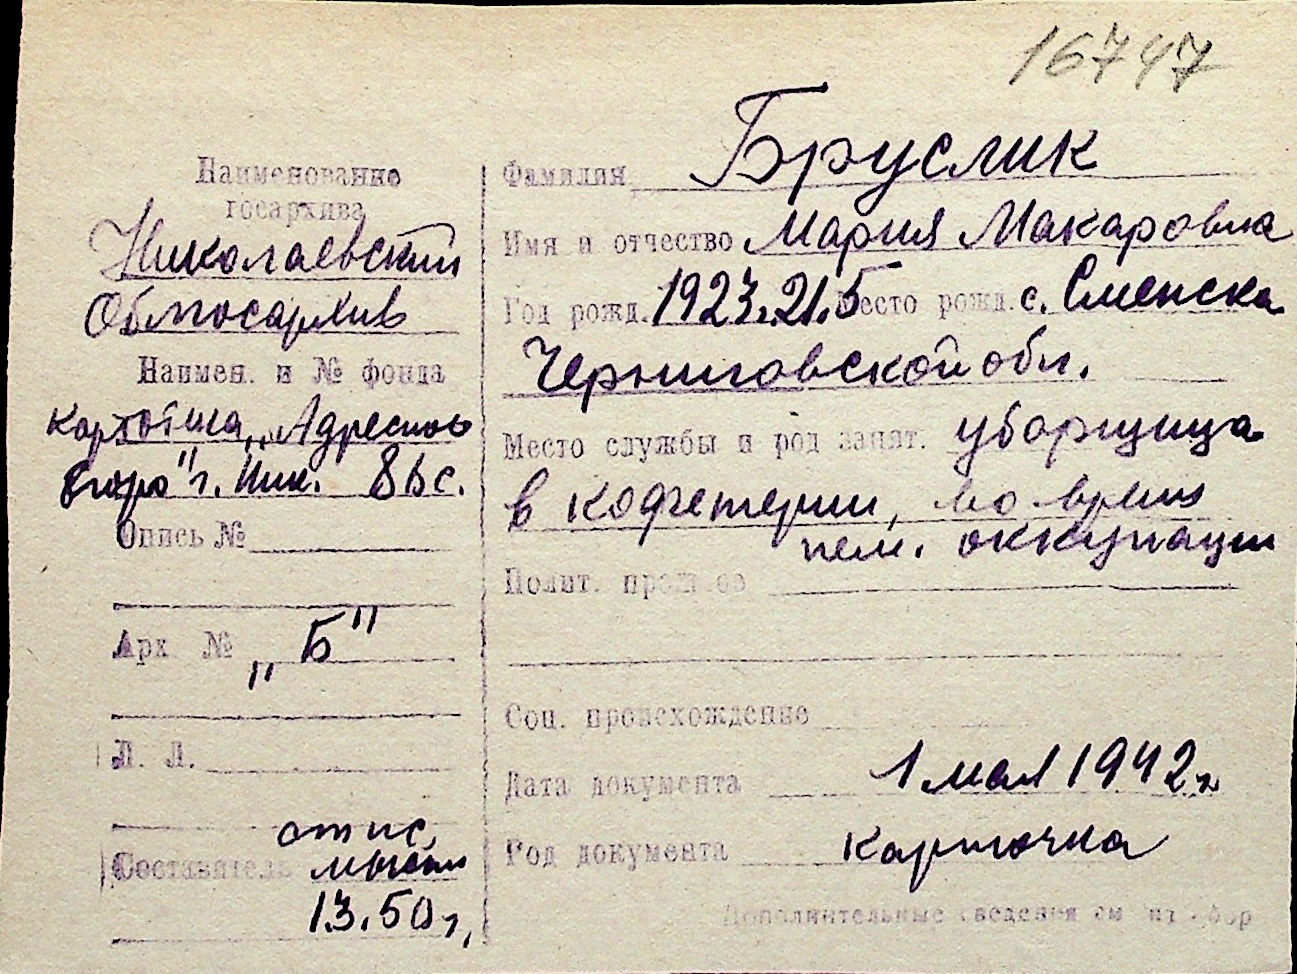 16747
Наименование
госархива
Николаевский
Облгосархив
Наимен. и № фонда
картотека „Адресное
бюро" г. Ник.
Опись №
Арх № „Б"
Л. Л.
Составитель
13.50г.
Фамилия Бруслик
Имя и отчество Мария Макаровна
Год рожд. 1923.21.5 Место рожд. с. Сменска
Черниговской обл.
Место службы и род занят. уборщица
в кофетерии, во время
нем. оккупации
Полит. прошлое
Соц. происхождение
Дата документа 1 мая 1942 г
Род документа карточка
Дополнительные сведения см на обор